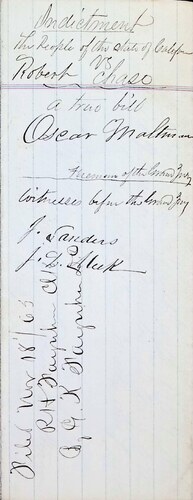 Indictment
The People of the State of Califor
vs
Robert Chase
a true bill
Oscar Maltman
Foreman of the Grand Jury
witnesses before the Grand Jury
J. Sanders
J. D. Meek
Filed Nov 18/65
R H Farquhar Clk
By G K Farquhar